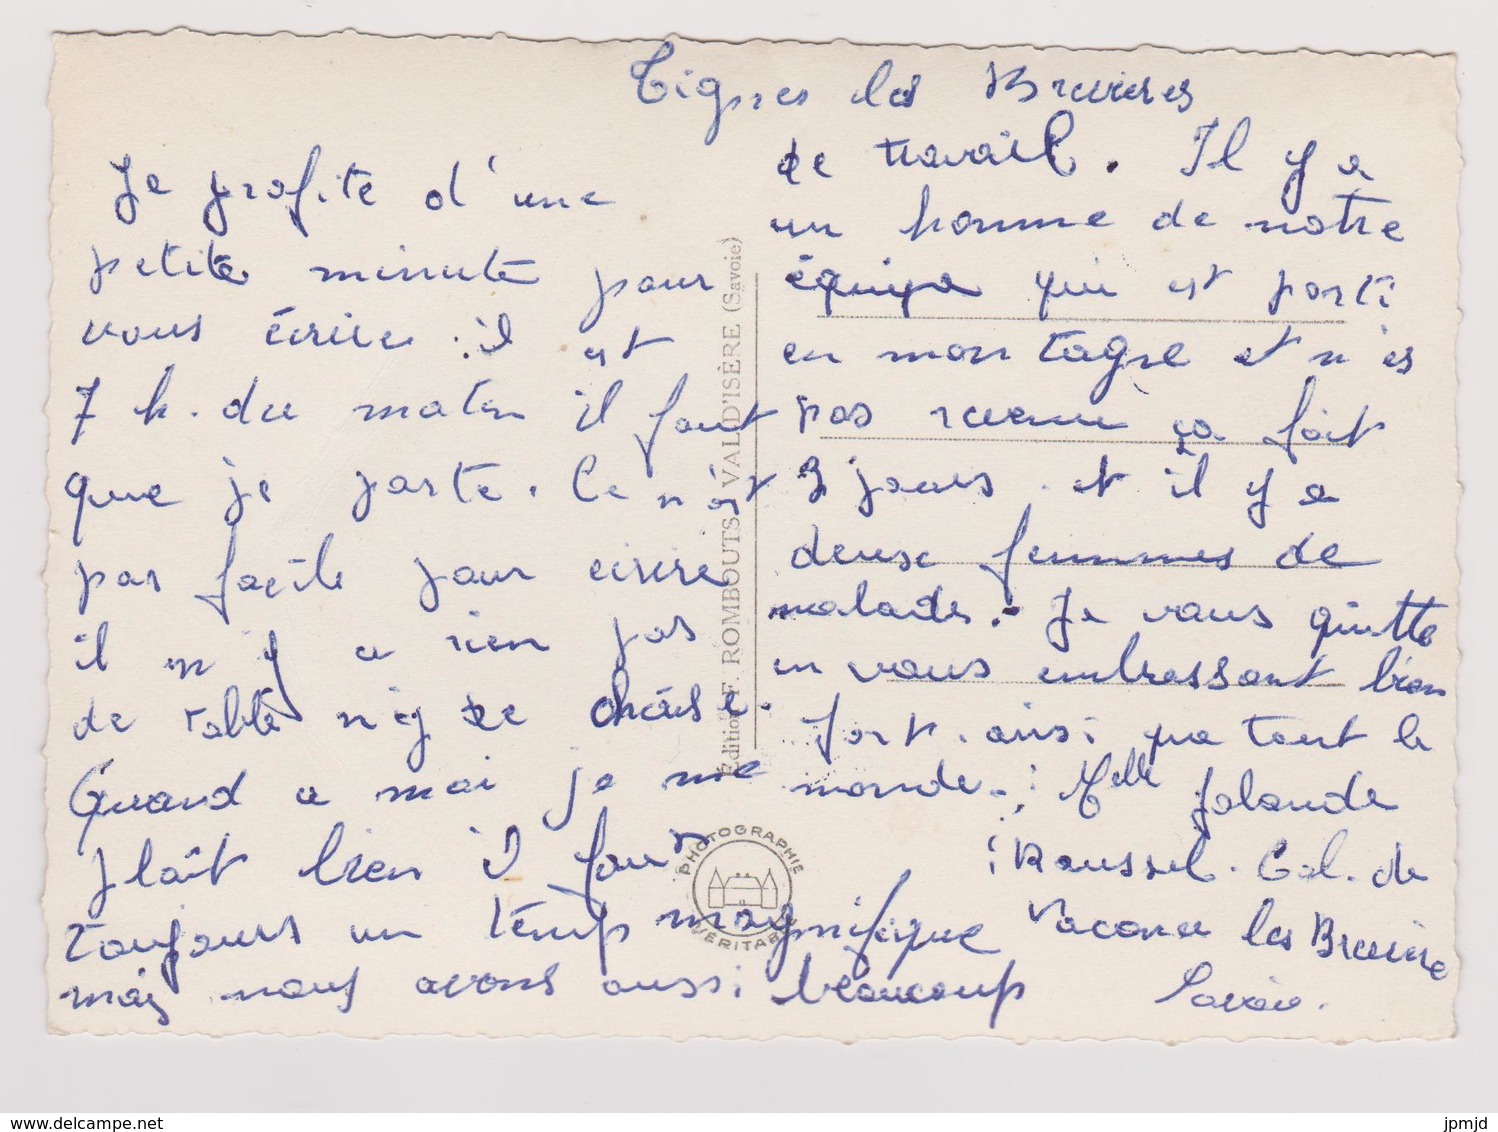 Tignes les Bruieres
Je profite d'une
petite minute pour
vous écrire il est
7 h. du matin il faut
que je parte. Ce n'est
pas facile pour écrire
il n y a rien pas
de table n'y de chaise.
Quand a moi je me
plaît bien il fait
toujours un temp magnifique
mais nous avons aussi beaucoup
de travail. Il y a
un homme de notre
équipe qui est parti
en montagne et n'es
pas revenu ça fait
3 jours. et il y a
deux femmes de
malades. Je vous quitte
en vous embrassant bien
fort. ainsi que tout le
monde. Melle Jolande
Roussel. Col. de
Vacance les Bruière
Savoie.
Édition F. ROMBOUTS VAL D'ISÈRE (Savoie)
PHOTOGRAPHIE
VÉRITABLE
www.delcampe.net
jpmjd